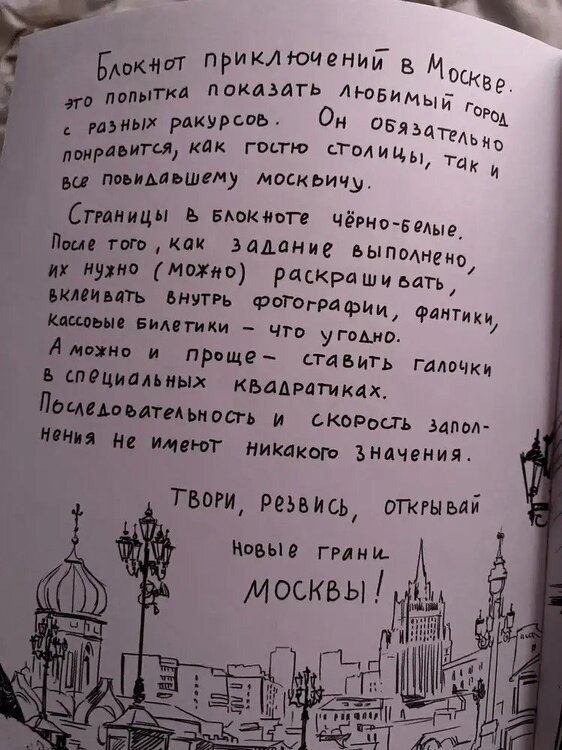 Блокнот приключений в Москве.
это попытка показать любимый город
с разных ракурсов. Он обязательно
понравится, как гостю столицы, так и
все повидавшему москвичу.
Страницы в блокноте чёрно-белые.
После того, как задание выполнено,
их нужно (можно) раскрашивать,
вклеивать внутрь фотографии, фантики,
кассовые билетики – что угодно.
А можно и проще – ставить галочки
в специальных квадратиках.
Последовательность и скорость запол-
нения не имеют никакого значения.
Твори, резвись, открывай
новые грани
Москвы!